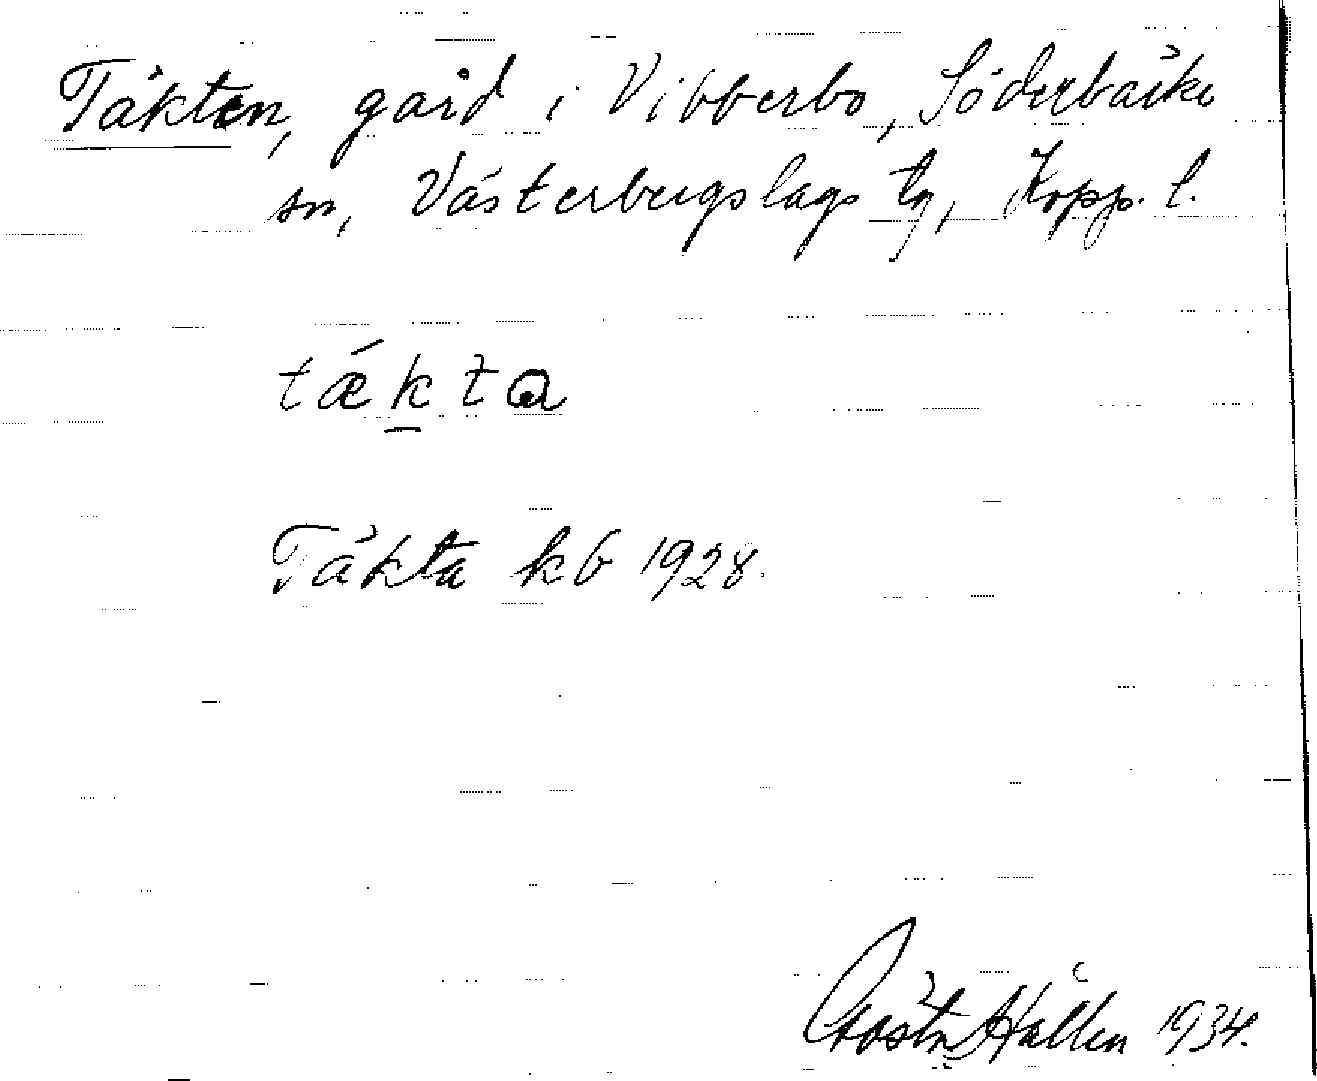 Täkten, gård i Vibberbo, Söderbärke
sn, Västerbergslags tg, Kopp. l.
tǽkta
Täkta kb 1928.
Gösta Hållen 1934.